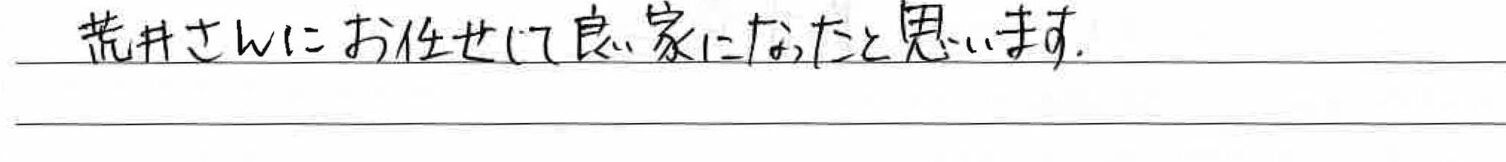 荒井さんにお任せして良い家になったと思います.